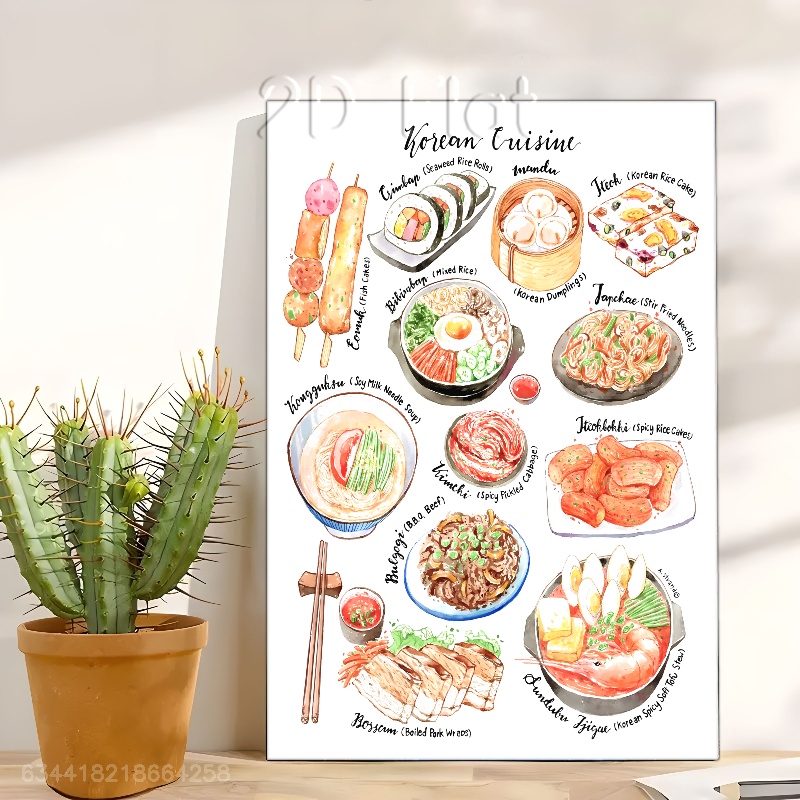 2D Flat
Korean Cuisine
Gimbap (Seaweed Rice Rolls)
mandu
(Korean Dumplings)
Tteok (Korean Rice Cake)
Eomuk (Fish Cakes)
Bibimbap (Mixed Rice)
Japchae (Stir Fried Noodles)
Kongguksu (Soy Milk Noodle Soup)
Kimchi (Spicy Pickled Cabbage)
Tteokbokki (Spicy Rice Cakes)
Bulgogi (B.B.Q. Beef)
Sundubu Jjigae (Korean Spicy Soft Tofu Stew)
Bossam (Boiled Pork Wraps)
634418218664258